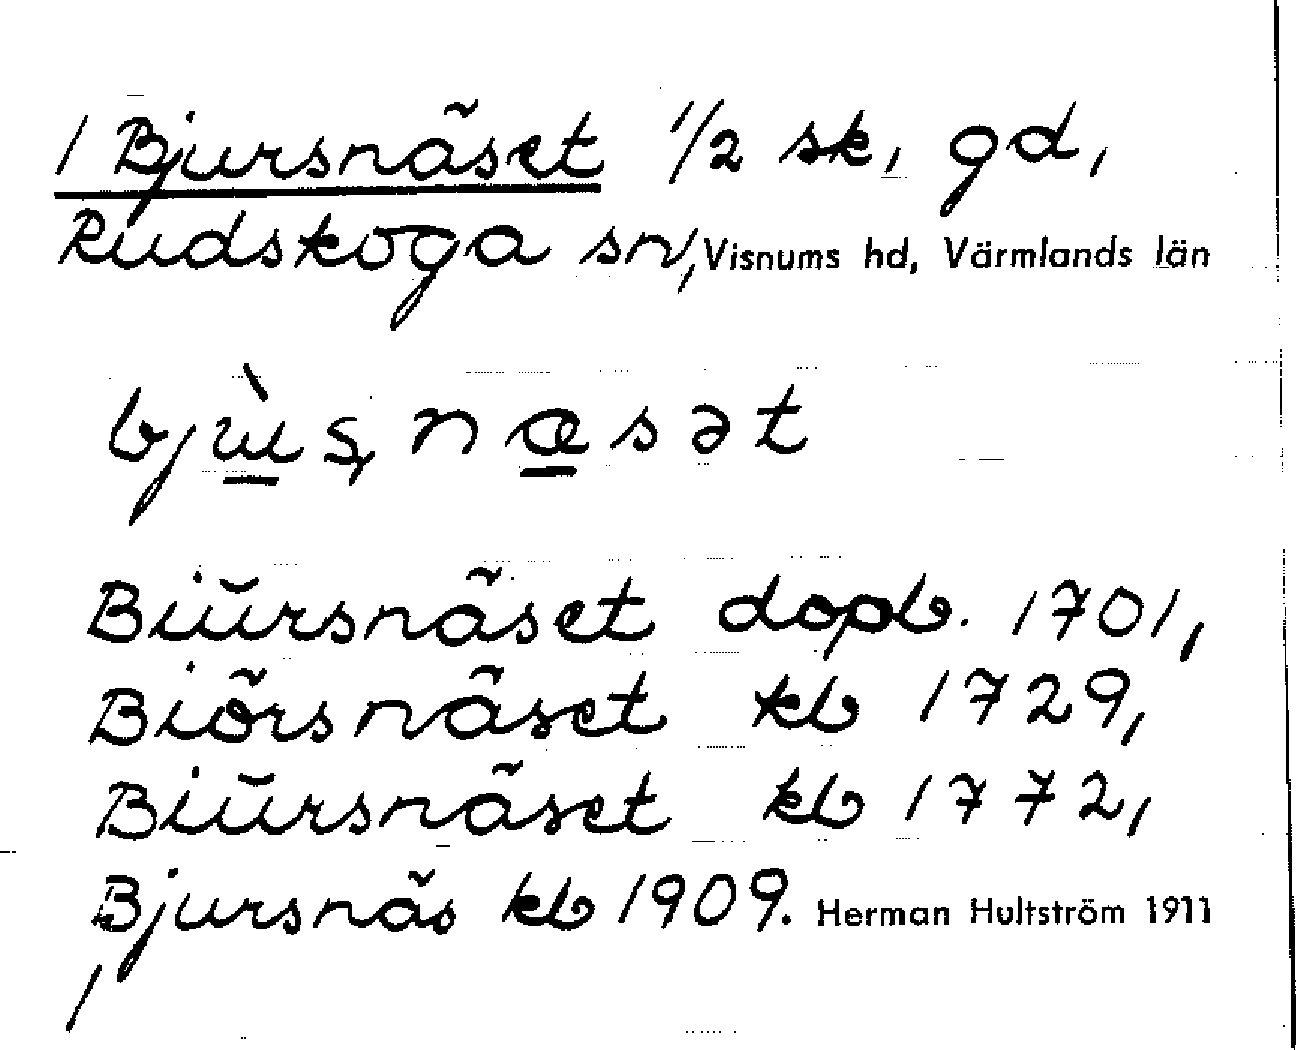 1 Bjursnäset 1/2 sk, gd,
Rudskoga sn, Visnums hd, Värmlands län
bjùʂnæsət
Biŭrsnäset dopb. 1701,
Biörsnäset kb 1729,
Biŭrsnäset kb 1772,
Bjursnäs kb 1909. Herman Hultström 1911